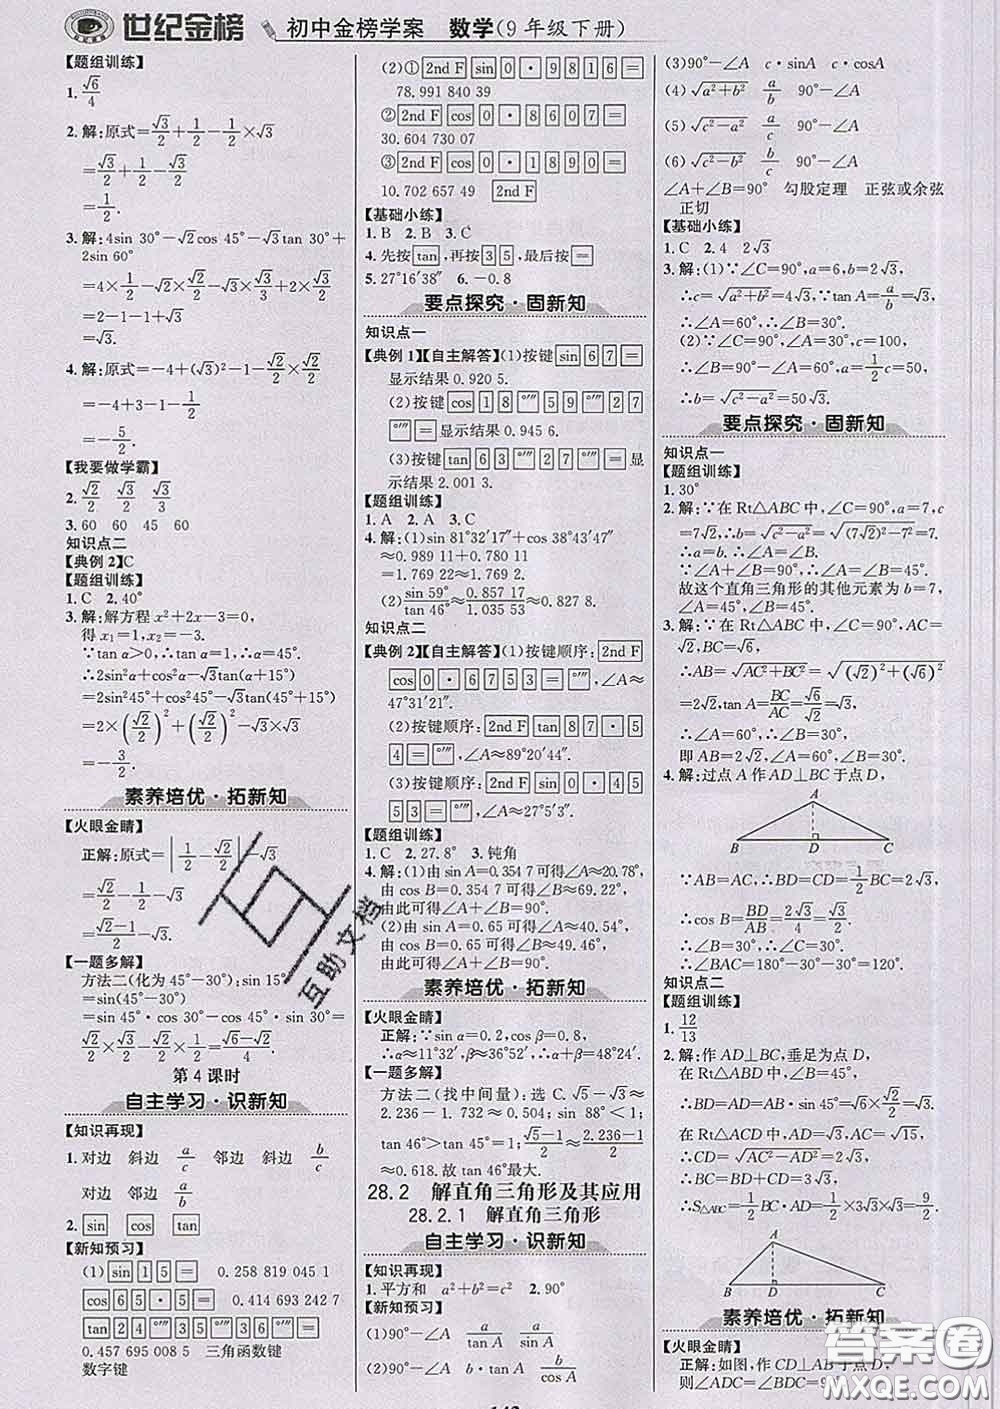 世纪金榜 初中金榜学案 数学(9年级下册)
【题组训练】
1. √6/4
2. 解:原式=√3/2+1/2-1/2×√3
=√3/2+1/2-√3/2
=1/2.
3. 解:4sin 30°-√2cos 45°-√3tan 30°+
2sin 60°
=4×1/2-√2×√2/2-√3×√3/3+2×√3/2
=2-1-1+√3
=√3.
4. 解:原式=-4+(√3)²-1-√2/2×√2/2
=-4+3-1-1/2
=-5/2.
【我要做学霸】
2. √2/2 √3/2 √3/3
3. 60 60 45 60
知识点二
【典例2】C
【题组训练】
1. C 2. 40°
3. 解:解方程x²+2x-3=0,
得x₁=1,x₂=-3.
∵tan α>0,∴tan α=1,∴α=45°.
∴2sin²α+cos²α-√3tan(α+15°)
=2sin²45°+cos²45°-√3tan(45°+15°)
=2×(√2/2)²+(√2/2)²-√3×√3
=-3/2.
素养培优·拓新知
【火眼金睛】
正解:原式=|1/2-√2/2|-√3
=√2/2-1/2-√3.
【一题多解】
方法二(化为45°-30°):sin 15°
=sin(45°-30°)
=sin 45°·cos 30°-cos 45°·sin 30°
=√2/2×√3/2-√2/2×1/2=(√6-√2)/4.
第4课时
自主学习·识新知
【知识再现】
1. 对边 斜边 a/c 邻边 斜边 b/c
对边 邻边 a/b
2. sin cos tan
【新知预习】
(1) sin 1 5 = 0.258 819 045 1
cos 6 5 · 5 = 0.414 693 242 7
tan 2 4 °′″ 3 5 °′″ 3 6 °′″ =
0.457 695 008 5 三角函数键
数字键
(2)① 2nd F sin 0 · 9 8 1 6 =
78.991 840 39
② 2nd F cos 0 · 8 6 0 7 =
30.604 730 07
③ 2nd F cos 0 · 1 8 9 0 =
10.702 657 49 2nd F
【基础小练】
1. B 2. B 3. C
4. 先按 tan ,再按 3 5 ,最后按 =
5. 27°16′38″ 6. -0.8
要点探究·固新知
知识点一
【典例1】【自主解答】(1)按键 sin 6 7 =
显示结果0.920 5.
(2)按键 cos 1 8 °′″ 5 9 °′″ 2 7
°′″ = 显示结果0.945 6.
(3)按键 tan 6 3 °′″ 2 7 °′″ = 显
示结果2.001 3.
【题组训练】
1. A 2. A 3. C
4. 解:(1)sin 81°32′17″+cos 38°43′47″
≈0.989 11+0.780 11
=1.769 22≈1.769 2.
(2)sin 59°/tan 46°≈0.857 17/1.035 53≈0.827 8.
知识点二
【典例2】【自主解答】(1)按键顺序: 2nd F
cos 0 · 6 7 5 3 = °′″ ,∠A≈
47°31′21″.
(2)按键顺序: 2nd F tan 8 7 · 5
4 = °′″ ,∠A≈89°20′44″.
(3)按键顺序: 2nd F sin 0 · 4 5
5 3 = °′″ ,∠A≈27°5′3″.
【题组训练】
1. C 2. 27.8° 3. 钝角
4. 解:(1)由sin A=0.354 7可得∠A≈20.78°,
由cos B=0.354 7可得∠B≈69.22°,
由此可得∠A+∠B=90°.
(2)由sin A=0.65可得∠A≈40.54°,
由cos B=0.65可得∠B≈49.46°,
由此可得∠A+∠B=90°.
素养培优·拓新知
【火眼金睛】
正解:∵sin α=0.2,cos β=0.8,
∴α≈11°32′,β≈36°52′,∴α+β=48°24′.
【一题多解】
方法二(找中间量):选C.√5-√3≈
2.236-1.732≈0.504;sin 88°<1;
tan 46°>tan 45°=1;(√5-1)/2≈(2.236-1)/2
≈0.618.故tan 46°最大.
28.2 解直角三角形及其应用
28.2.1 解直角三角形
自主学习·识新知
【知识再现】
1. 平方和 a²+b²=c² 2. 90°
【新知预习】
(1)90°-∠A a/tan A a/sin A
(2)90°-∠A b·tan A b/cos A
(3)90°-∠A c·sinA c·cosA
(4)√(a²+b²) a/b 90°-∠A
(5)√(c²-a²) a/c 90°-∠A
(6)√(c²-b²) b/c 90°-∠A
∠A+∠B=90° 勾股定理 正弦或余弦
正切
【基础小练】
1. C 2. 4 2√3
3. 解:(1)∵∠C=90°,a=6,b=2√3,
∴c=√(a²+b²)=4√3,∵tan A=a/b=√3,
∴∠A=60°,∴∠B=30°.
(2)∵∠C=90°,∠A=30°,c=100,
∴∠B=90°-∠A=60°,a=1/2c=50,
∴b=√(c²-a²)=50√3.
要点探究·固新知
知识点一
【题组训练】
1. 30°
2. 解:∵在Rt△ABC中,∠C=90°,a=7,c
=7√2,∴b=√(c²-a²)=√((7√2)²-7²)=7.
∴a=b.∴∠A=∠B.
∵∠A+∠B=90°,∴∠A=∠B=45°.
故这个直角三角形的其他元素为b=7,
∠A=45°,∠B=45°.
3. 解:∵在Rt△ABC中,∠C=90°,AC=
√2,BC=√6,
∴AB=√(AC²+BC²)=√((√2)²+(√6)²)
=2√2,tan A=BC/AC=√6/√2=√3,
∴∠A=60°,∴∠B=30°,
即AB=2√2,∠A=60°,∠B=30°.
4. 解:过点A作AD⊥BC于点D,
A
B D C
∵AB=AC,∴BD=CD=1/2BC=2√3,
∴cos B=BD/AB=2√3/4=√3/2,
∴∠B=30°,∴∠C=30°,
∴∠BAC=180°-30°-30°=120°.
知识点二
【题组训练】
1. 12/13
2. 解:作AD⊥BC,垂足为点D,
在Rt△ABD中,∠B=45°,
∴BD=AD=AB·sin 45°=√6×√2/2=√3.
在Rt△ACD中,AD=√3,AC=√15,
∴CD=√(AC²-AD²)=2√3,
∴BC=BD+CD=3√3,
∴S△ABC=1/2BC·AD=1/2×3√3×√3=9/2.
A
B D C
素养培优·拓新知
【火眼金睛】
正解:如图,作CD⊥AB于点D,
则∠ADC=∠BDC=90°.
互助文档
答案圈
MXQE.COM